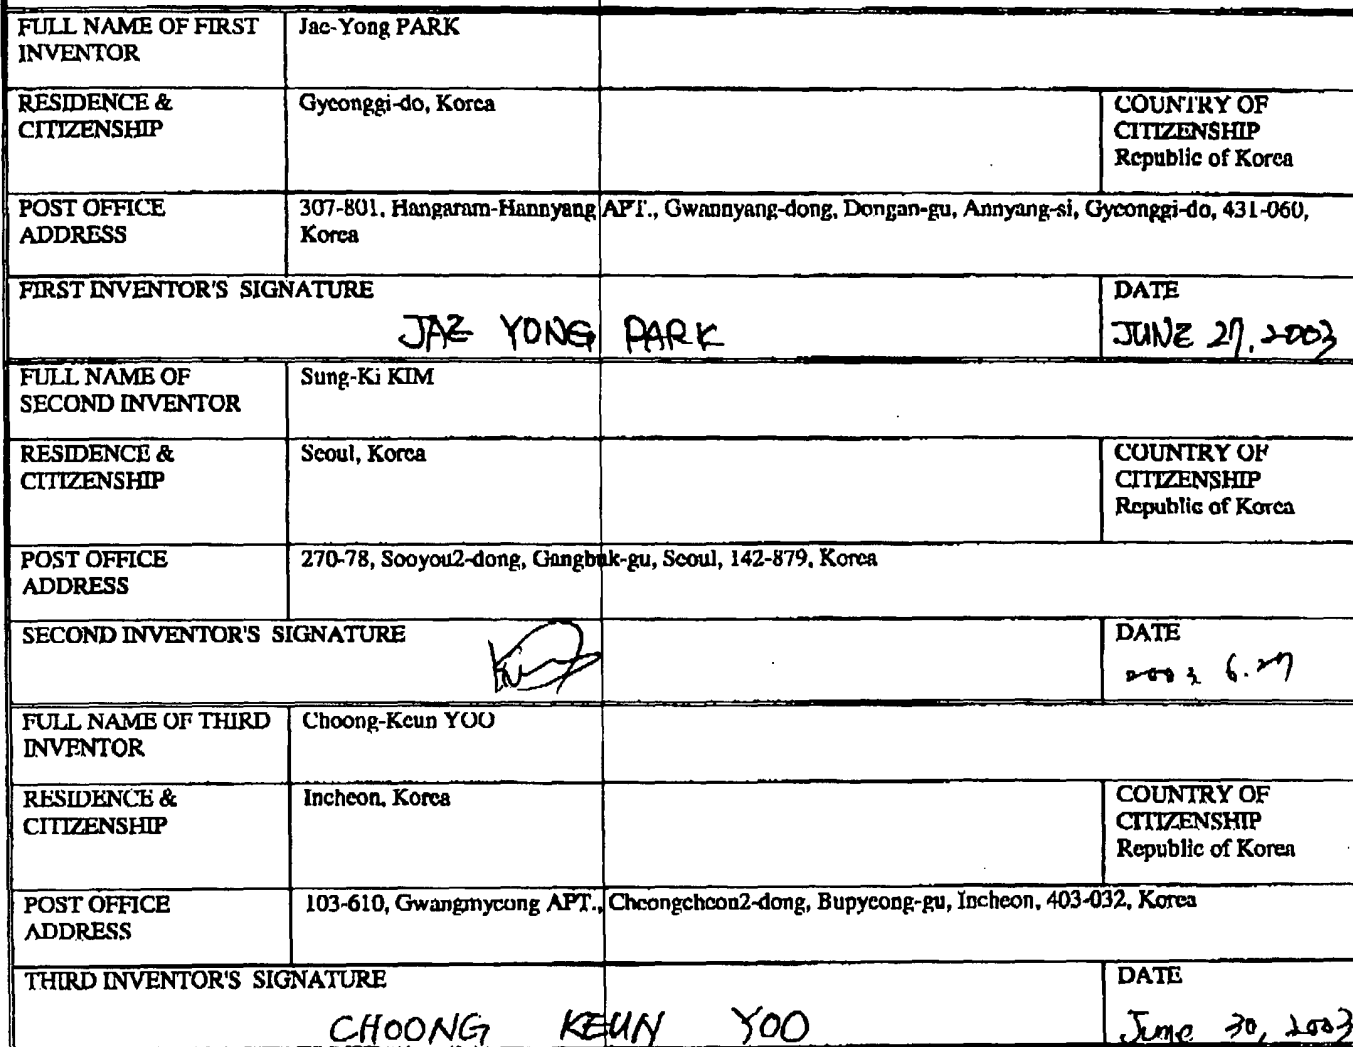 FULL NAME OF FIRST
INVENTOR
Jae-Yong PARK
RESIDENCE &
CITIZENSHIP
Gyeonggi-do, Korea
COUNTRY OF
CITIZENSHIP
Republic of Korea
POST OFFICE
ADDRESS
307-801, Hangaram-Hannyang APT., Gwannyang-dong, Dongan-gu, Annyang-si, Gyeonggi-do, 431-060,
Korea
FIRST INVENTOR'S SIGNATURE
JAE YONG PARK
DATE
JUNE 27, 2003
FULL NAME OF
SECOND INVENTOR
Sung-Ki KIM
RESIDENCE &
CITIZENSHIP
Seoul, Korea
COUNTRY OF
CITIZENSHIP
Republic of Korea
POST OFFICE
ADDRESS
270-78, Sooyou2-dong, Gangbuk-gu, Seoul, 142-879, Korea
SECOND INVENTOR'S SIGNATURE
Kim
DATE
2003 6.27
FULL NAME OF THIRD
INVENTOR
Choong-Keun YOO
RESIDENCE &
CITIZENSHIP
Incheon, Korea
COUNTRY OF
CITIZENSHIP
Republic of Korea
POST OFFICE
ADDRESS
103-610, Gwangmyeong APT., Cheongcheon2-dong, Bupyeong-gu, Incheon, 403-032, Korea
THIRD INVENTOR'S SIGNATURE
CHOONG KEUN YOO
DATE
June 30, 2003